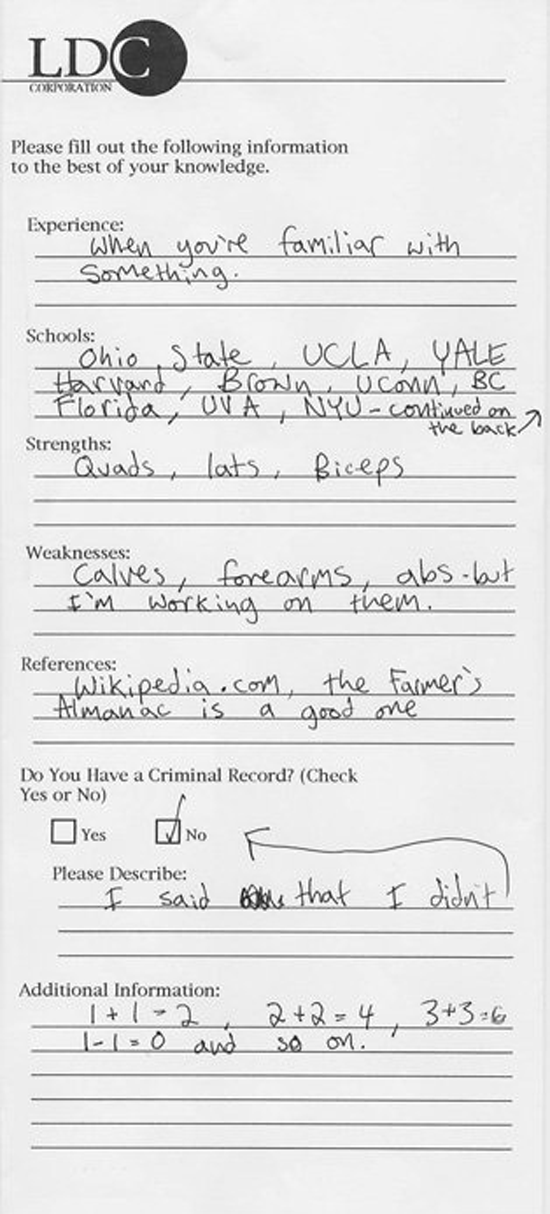 LDC
CORPORATION
Please fill out the following information
to the best of your knowledge.
Experience:
When you're familiar with
Something.
Schools:
Ohio, State, UCLA, YALE
Harvard, Brown, UConn, BC
Florida, UVA, NYU - continued on
the back
Strengths:
Quads, lats, Biceps
Weaknesses:
Calves, forearms, abs - but
I'm working on them.
References:
Wikipedia.com, the Farmer's
Almanac is a good one
Do You Have a Criminal Record? (Check
Yes or No)
Yes No
Please Describe:
I said that I didn't
Additional Information:
1+1=2, 2+2=4, 3+3=6
1-1=0 and so on.